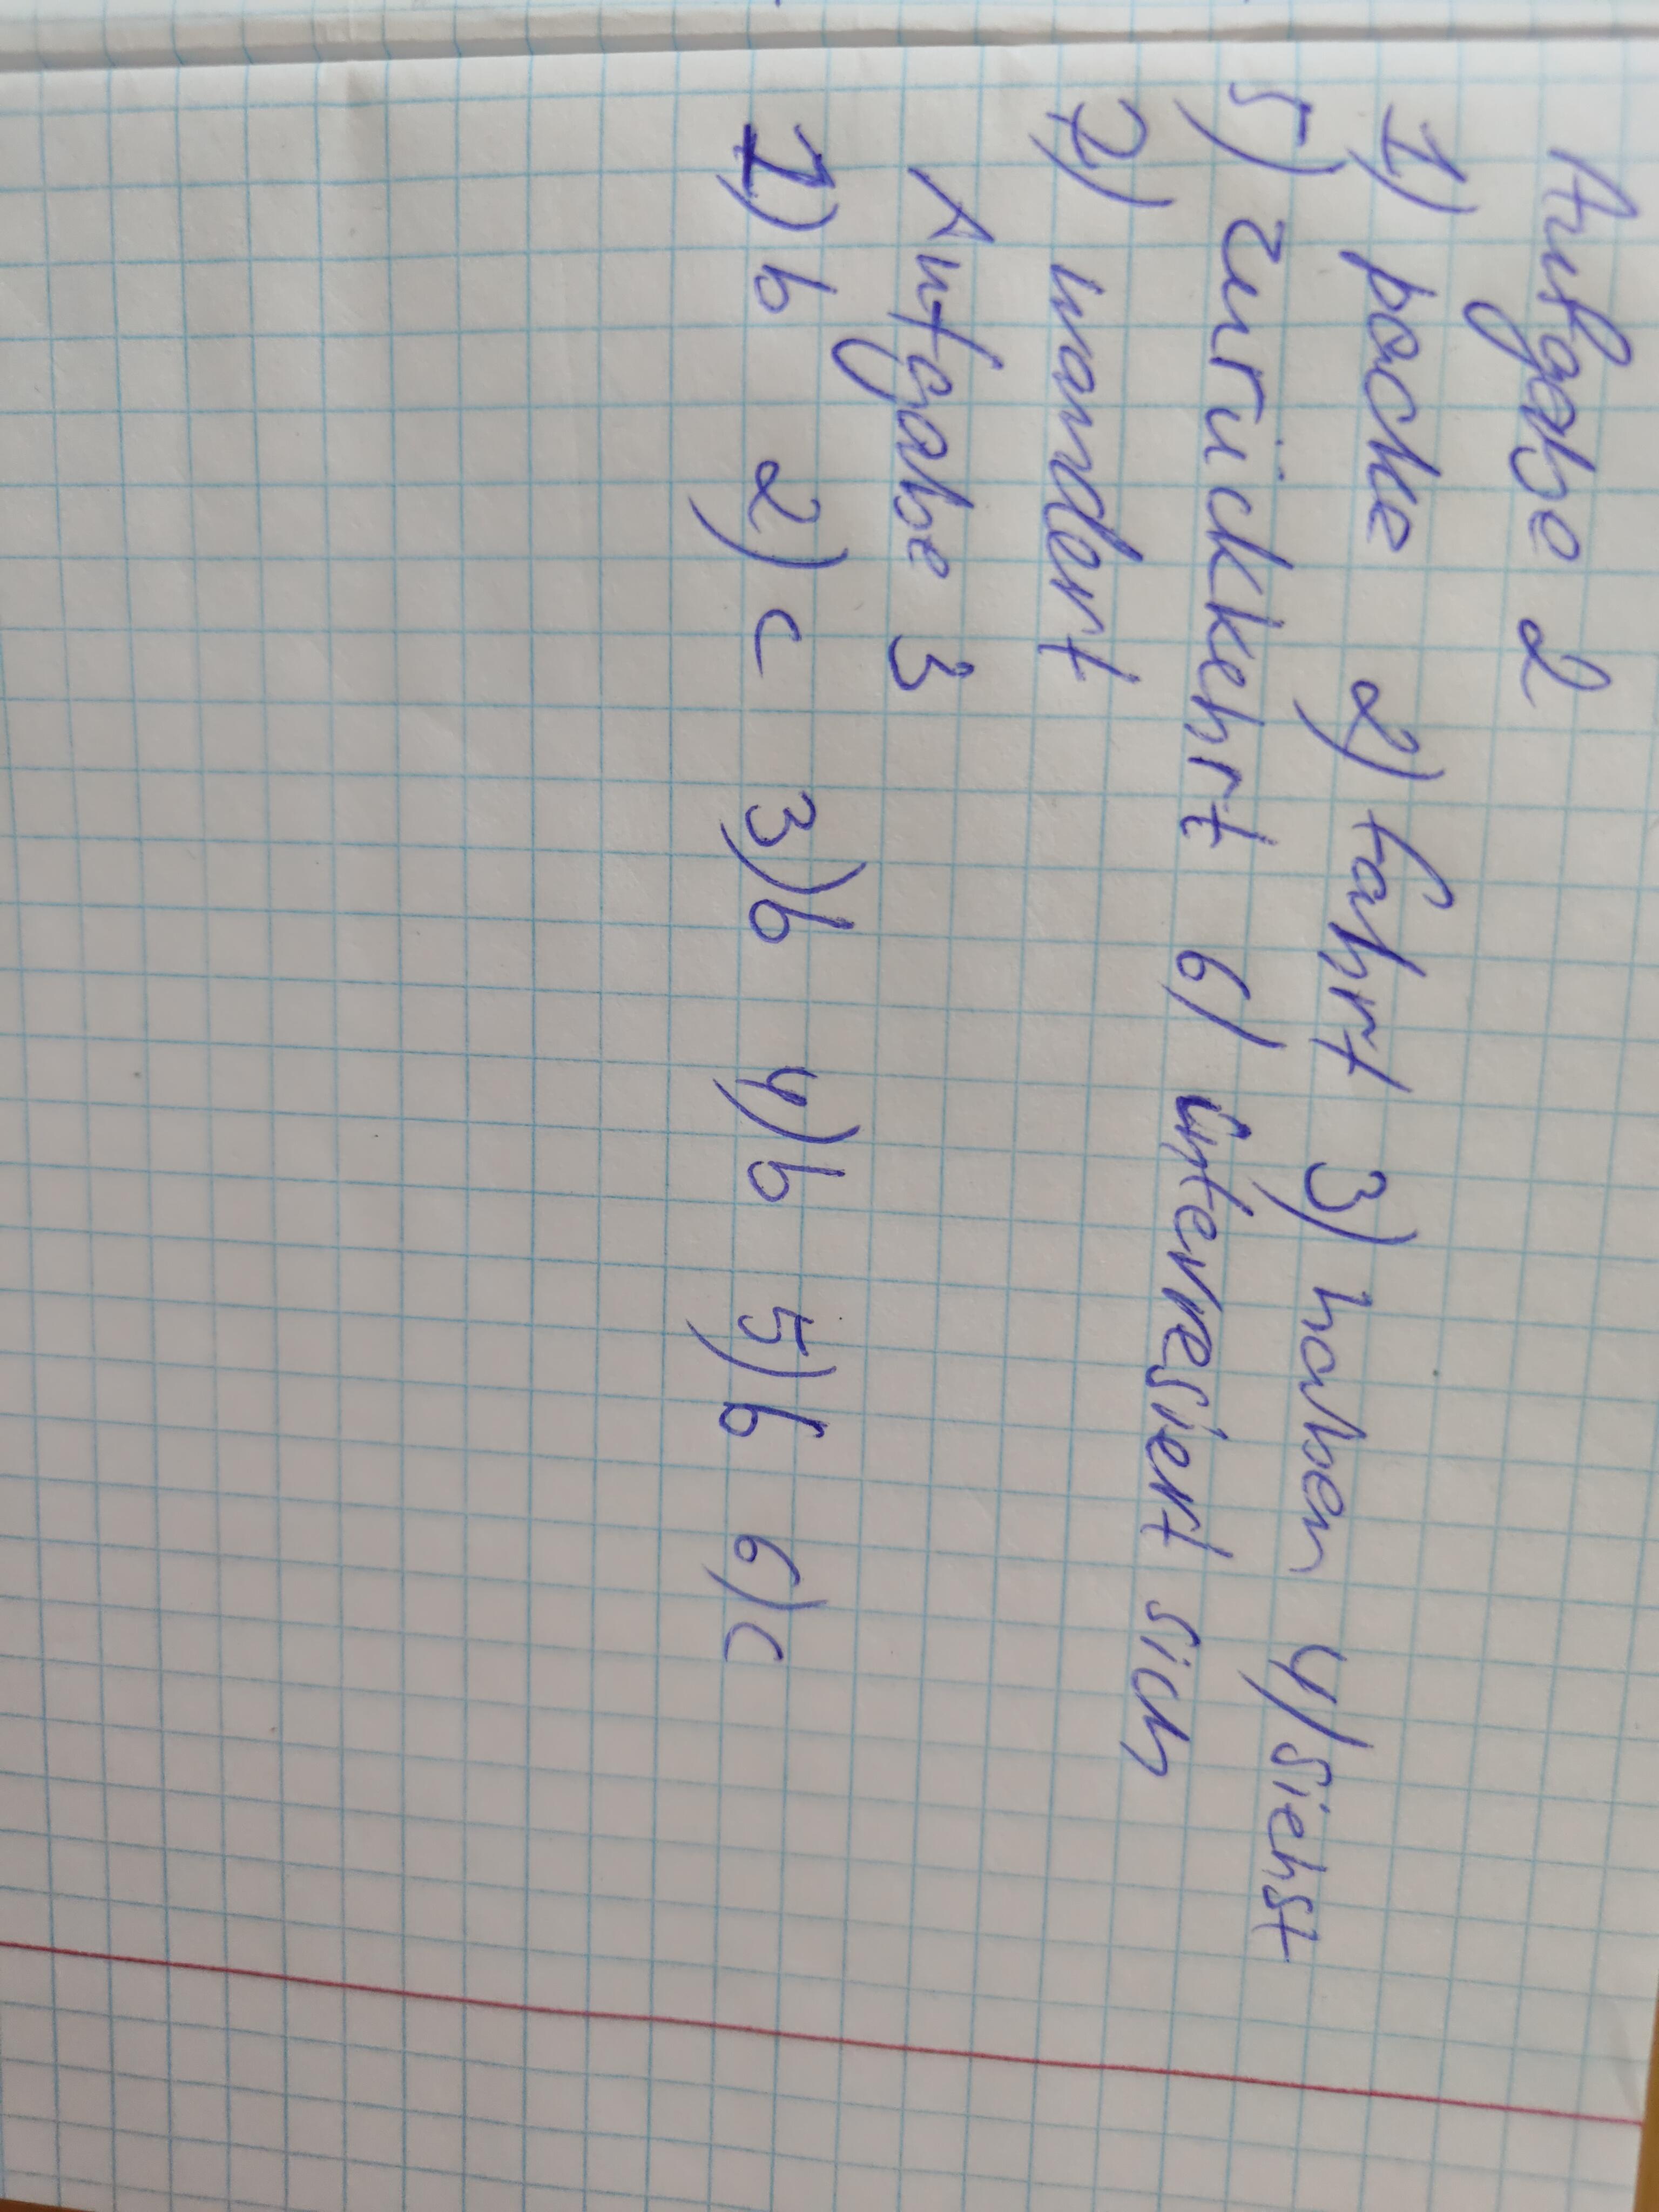 Aufgabe 2
1) packe 2) fahrt 3) haben 4) siehst
5) zurückkehrt 6) interresiert sich
7) wandert
Aufgabe 3
1) b 2) c 3) b 4) b 5) b 6) c